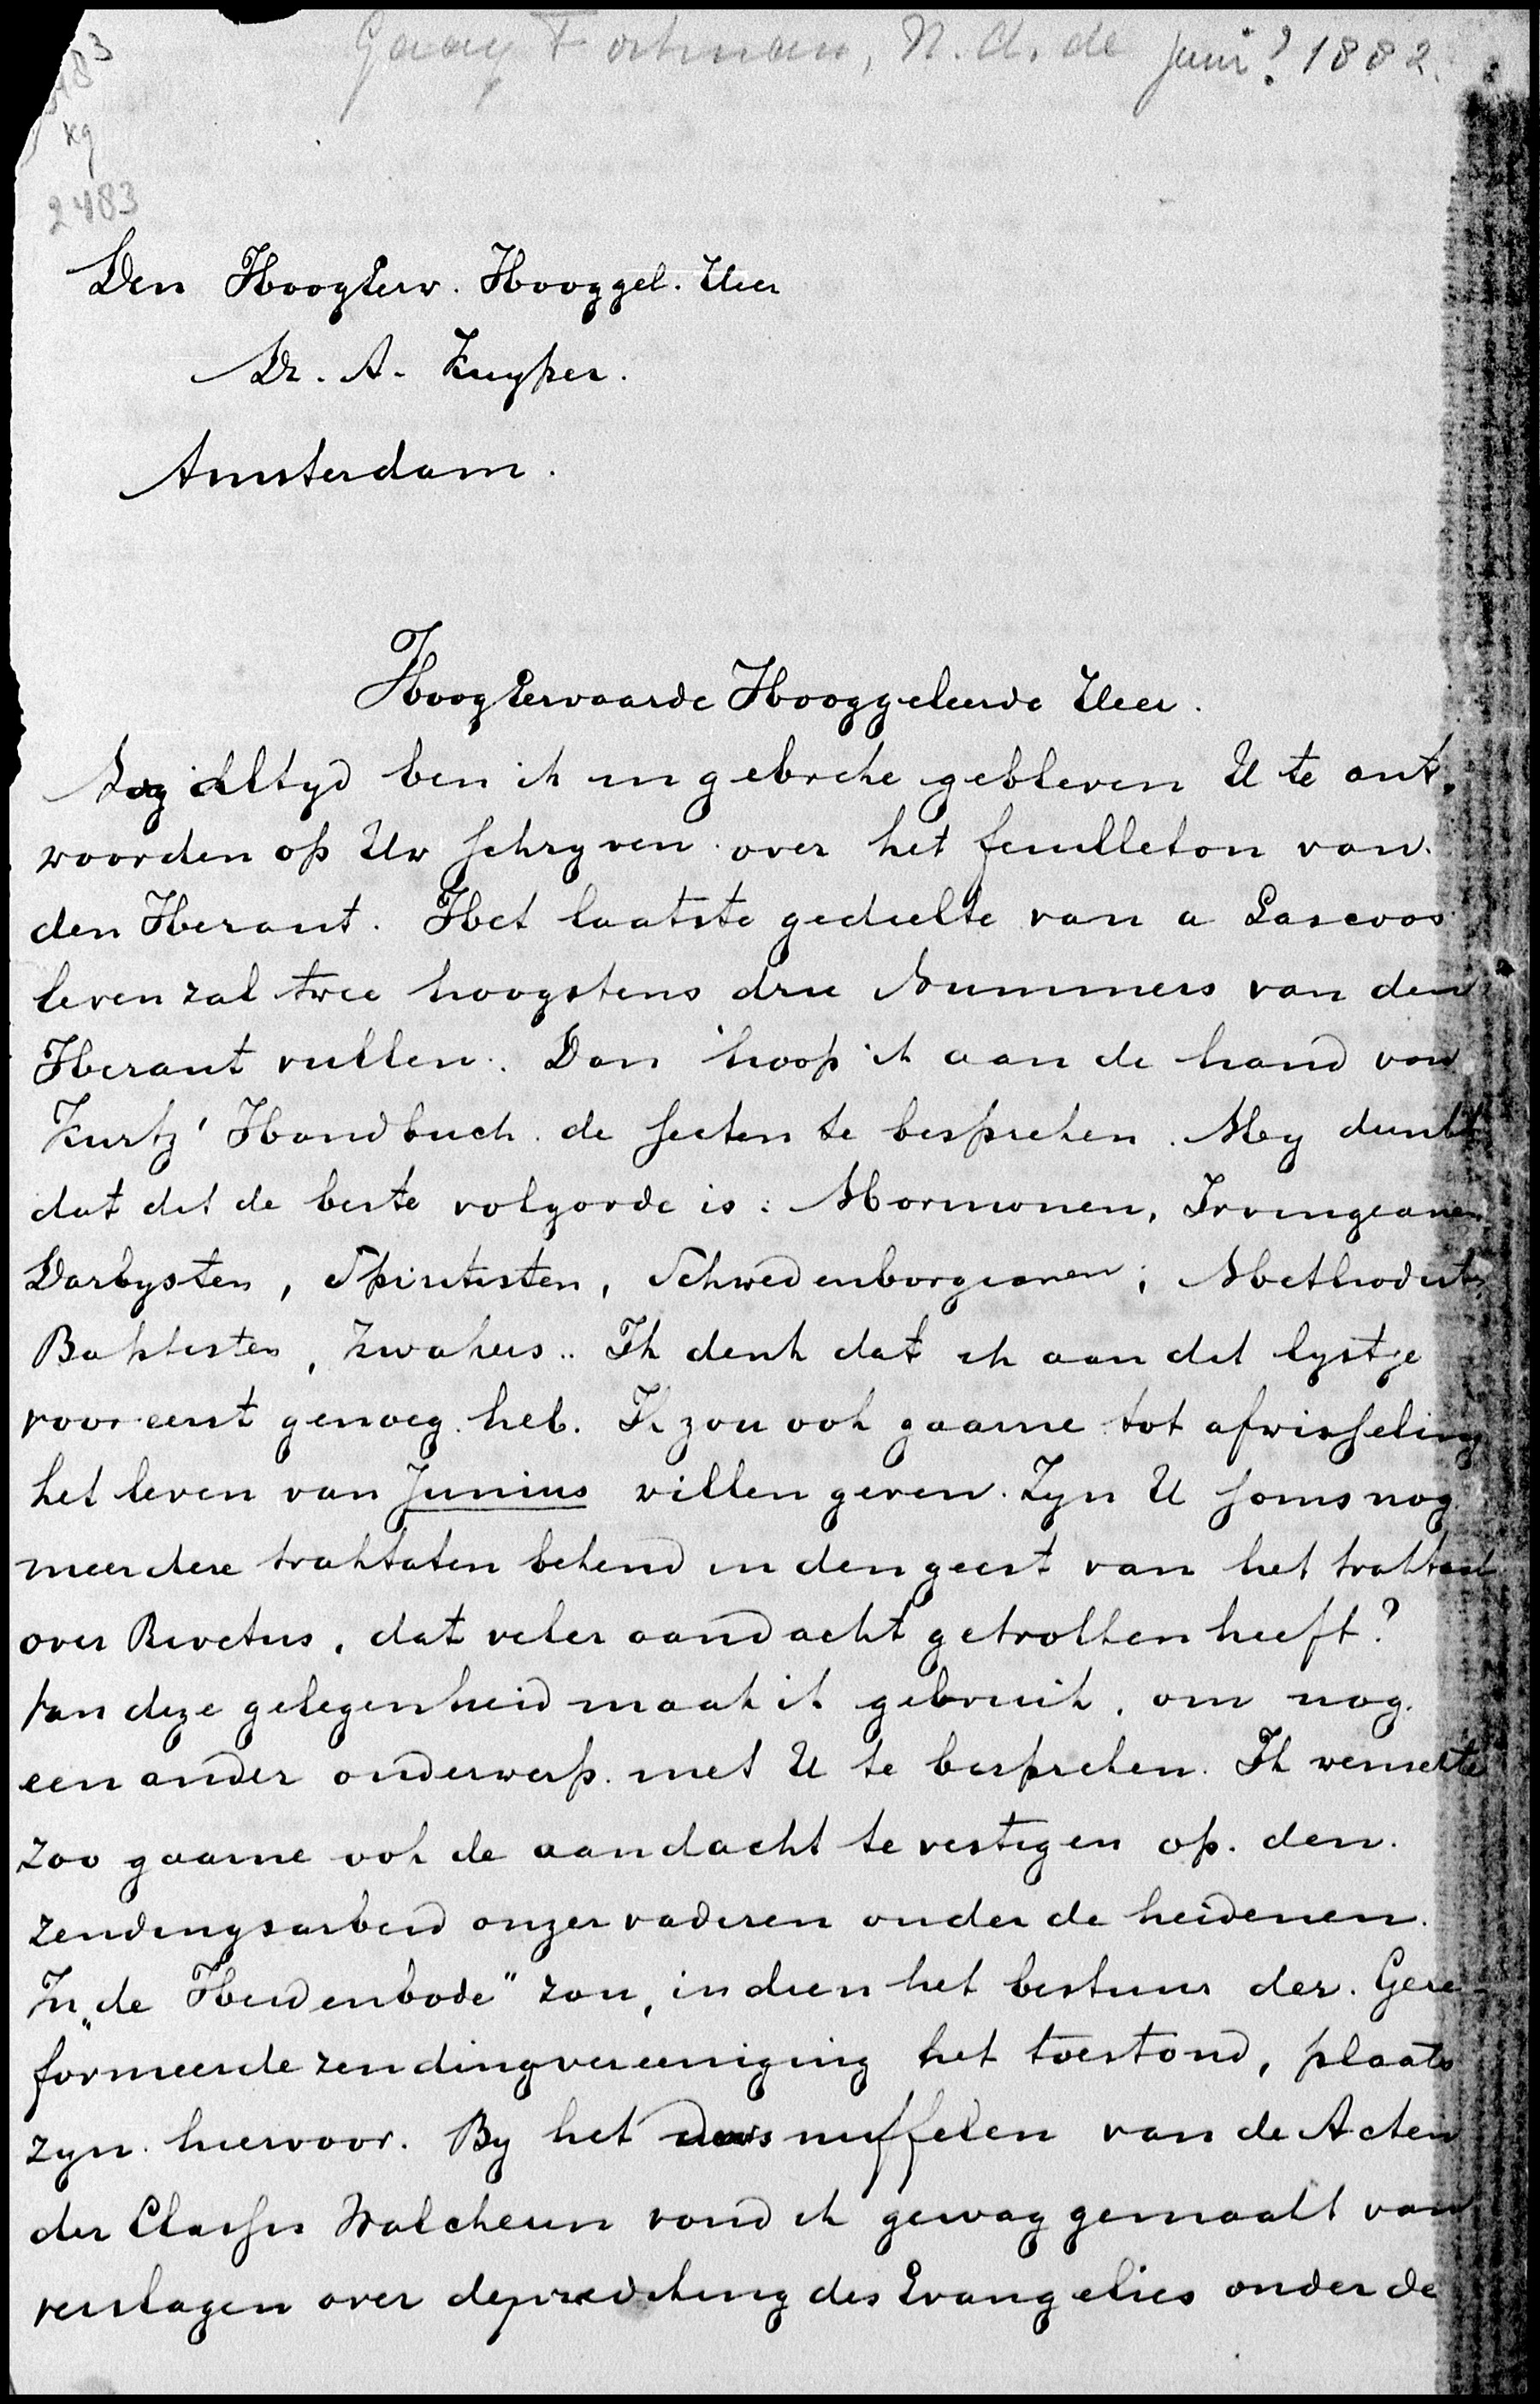 Gaay Fortman, N. A. de Juni? 1882.
2483
Den HoogEerw. Hooggel. Heer
Dr. A. Kuyper.
Amsterdam.
HoogEerwaarde Hooggeleerde Heer.
Nog altyd ben ik in gebreke gebleven U te ant-
woorden op Uw schryven over het feuilleton van
den Heraut. Het laatste gedeelte van a Lascoos
leven zal twee hoogstens drie Nummers van den
Heraut vullen. Dan hoop ik aan de hand van
Kurtz' Handbuch de secten te bespreken. My dunkt
dat dit de beste volgorde is: Mormonen, Irvingeanen,
Darbysten, Spiritisten, Schwedenborgianen; Methodisten
Baptisten, Kwakers.. Ik denk dat ik aan dit lystje
voor eerst genoeg heb. Ik zou ook gaarne tot afwisseling
het leven van Junius willen geven. Zyn U soms nog
meerdere traktaten bekend in den geest van het traktaat
over Rivetus, dat veler aandacht getrokken heeft?
Van deze gelegenheid maak ik gebruik, om nog
een ander onderwerp met U te bespreken. Ik wenschte
zoo gaarne ook de aandacht te vestigen op den
zendingsarbeid onzer vaderen onder de heidenen.
In „de Heidenbode" zou, indien het bestuur der Gere-
formeerde zendingvereeniging het toestond, plaats
zyn hiervoor. By het doorsnuffelen van de Acten
der Classis Walcheren vond ik gewag gemaakt van
verslagen over de prediking des Evangelies onder de